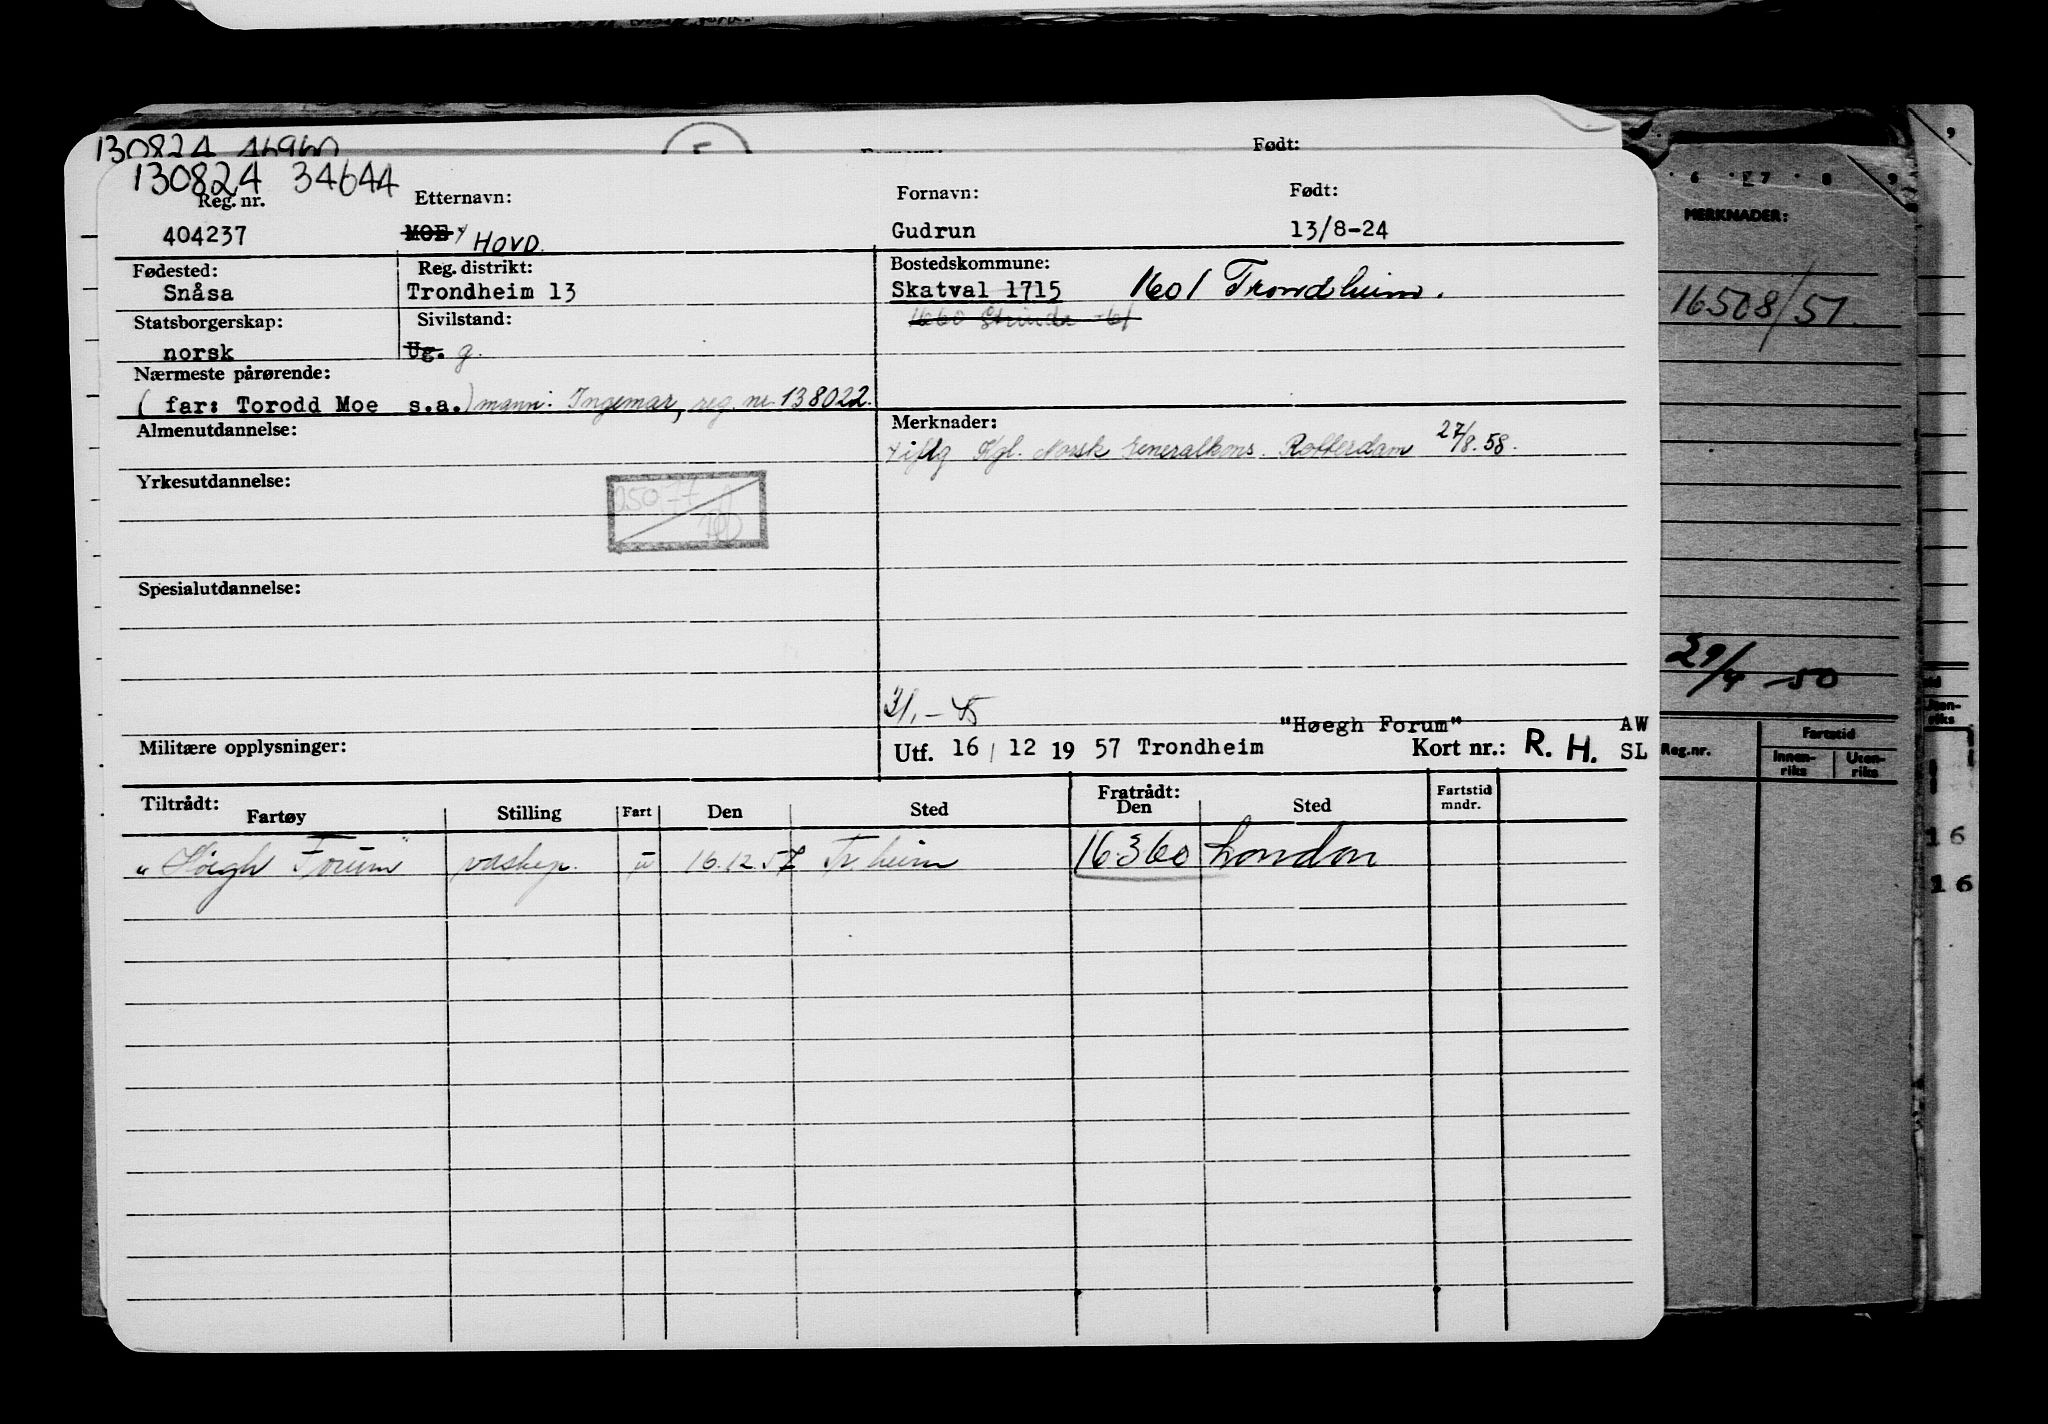 130824 46960
Født:
130824 34644
Reg. nr. Etternavn: Fornavn: Født:
404237 MOE x HOVD. Gudrun 13/8-24
Fødested: Reg. distrikt: Bostedskommune:
Snåsa Trondheim 13 Skatval 1715 1601 Trondheim.
Statsborgerskap: Sivilstand: 1660 Strinda -61
norsk Ug. g.
Nærmeste pårørende:
( far: Torodd Moe s.a.) mann: Ingemar, reg. nr. 138022.
Almenutdannelse: Merknader:
x iflg Kgl. Norsk Generalkons. Rotterdam 27/8.58.
Yrkesutdannelse:
Spesialutdannelse:
31.-45
"Høegh Forum" AW
Militære opplysninger: Utf. 16 / 12 19 57 Trondheim Kort nr.: R. H. SL
Tiltrådt: Fratrådt:
Fartøy Stilling Fart Den Sted Den Sted Fartstid mndr.
"Høegh Forum" vaskep. u 16.12.57 Tr.heim 16360 London
6 7 8 9
MERKNADER:
16508/51.
29/4 -50
Reg.nr. Fartstid
Innen-riks Uten-riks
Uten-riks
16
16